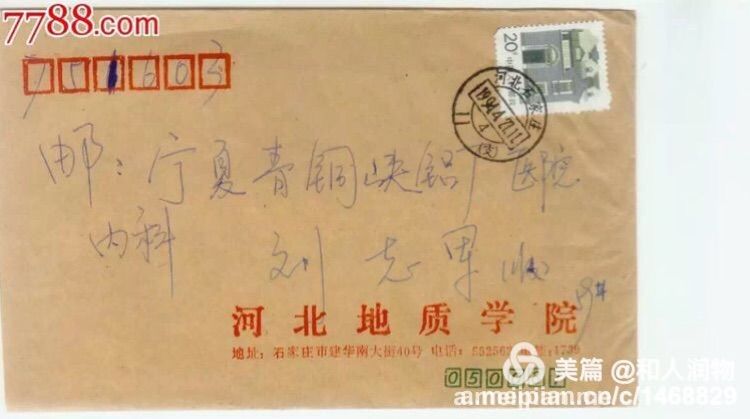 7788.com
751603
20
河北石家庄
1994.4.22.17
11
4
(支)
邮:宁夏青铜峡铝厂医院
内科 刘志军(收)
河北地质学院
地址:石家庄市建华南大街40号 电话:
1739
美篇 @和人润物
meipian.cn/c/1468829